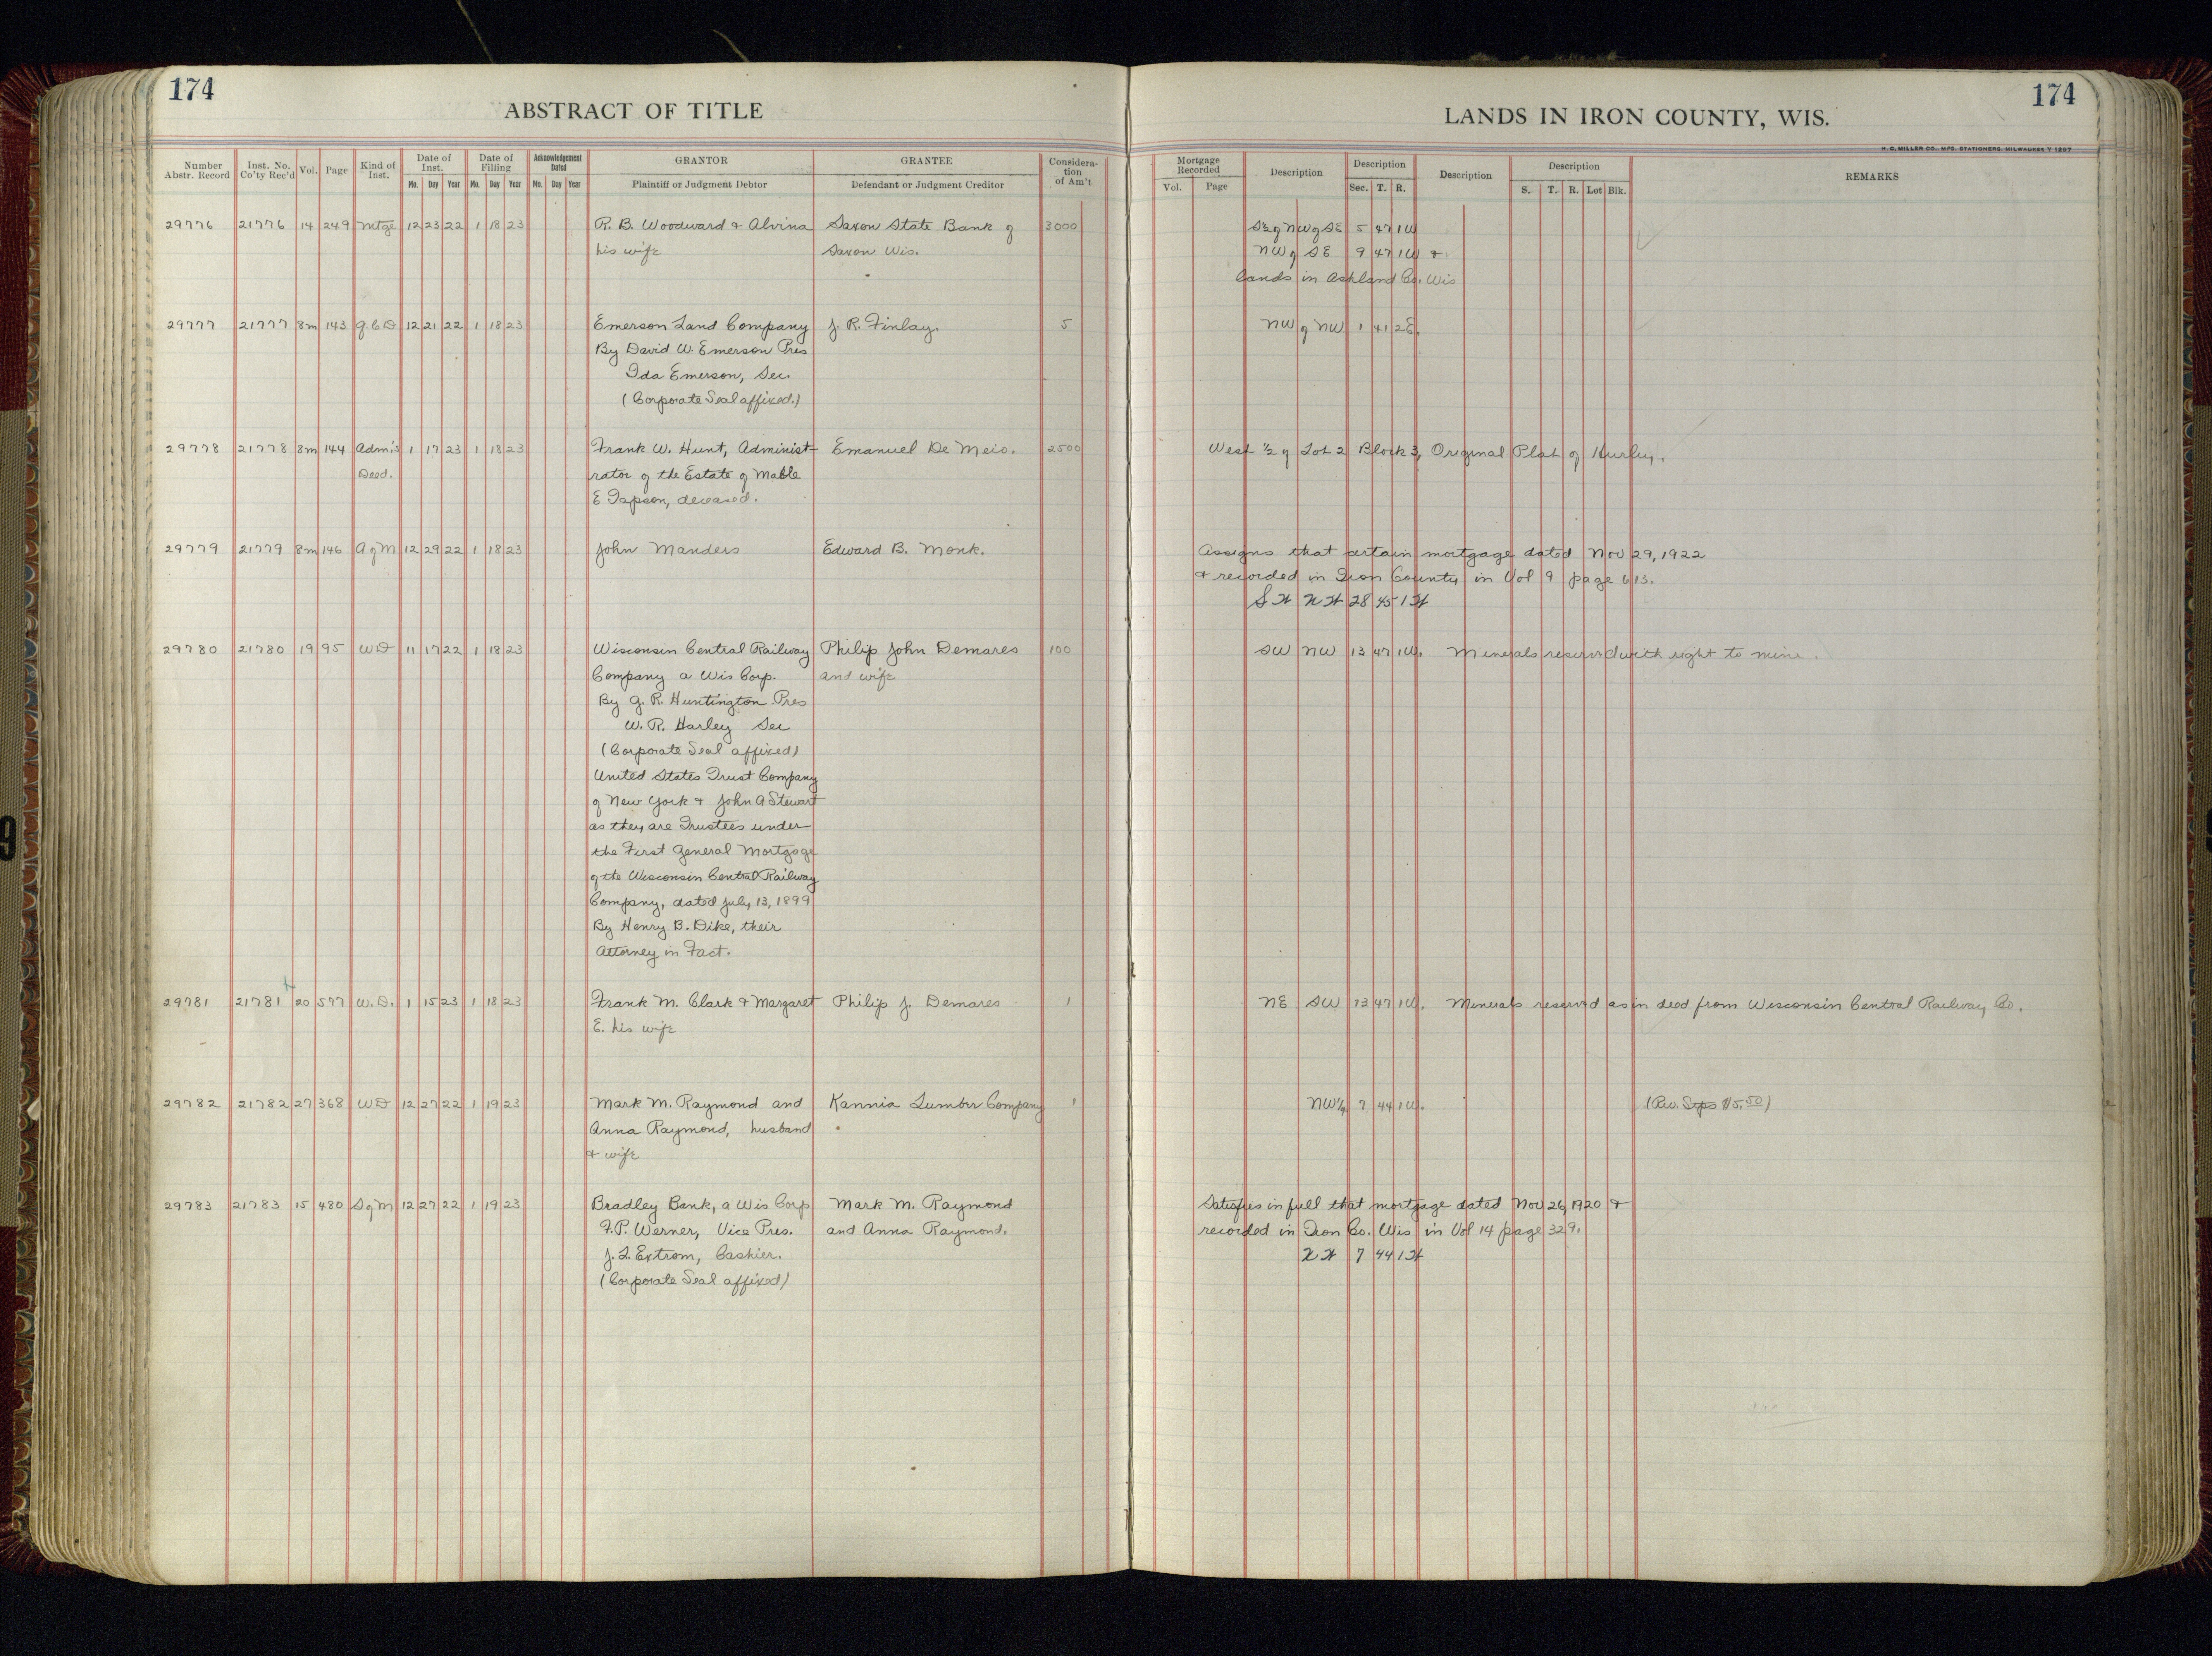 174
ABSTRACT OF TITLE
Number Abstr. Record Inst. No. Co'ty Rec'd Vol. Page Kind of Inst. Date of Inst. Mo. Day Year Date of Filing Mo. Day Year Acknowledgement Dated Mo. Day Year GRANTOR Plaintiff or Judgment Debtor GRANTEE Defendant or Judgment Creditor Considera-tion of Am't
29776 21776 14 249 Mtge 12 23 22 1 18 23 R. B. Woodward & Alvina Saxon State Bank of 3000
his wife Saxon Wis.
29777 21777 8m 143 Q.C.D 12 21 22 1 18 23 Emerson Land Company J. R. Finlay. 5
By David W. Emerson Pres
Ida Emerson, Sec.
(Corporate Seal affixed.)
29778 21778 8m 144 Adm's 1 17 23 1 18 23 Frank W. Hunt, Administ- Emanuel De Meio. 2500
Deed. rator of the Estate of Mable
E Tapson, deceased.
29779 21779 8m 146 A of M 12 29 22 1 18 23 John Manders Edward B. Monk.
29780 21780 19 95 WD 11 17 22 1 18 23 Wisconsin Central Railway Philip John Demares 100
Company a Wis Corp. and wife
By G. R. Huntington Pres
W. R. Harley Sec
(Corporate Seal affixed)
United States Trust Company
of New York & John A Stewart
as they are Trustees under
the First General Mortgage
of the Wisconsin Central Railway
Company, dated July 13, 1899
By Henry B. Dike, their
Attorney in Fact.
29781 21781 20 577 W.D. 1 15 23 1 18 23 Frank M. Clark & Margaret Philip J. Demares 1
E. his wife
29782 21782 27 368 WD 12 27 22 1 19 23 Mark M. Raymond and Kannia Lumber Company 1
Anna Raymond, husband
& wife
29783 21783 15 480 S of M 12 27 22 1 19 23 Bradley Bank, a Wis Corp Mark M. Raymond
F.P. Werner, Vice Pres. and Anna Raymond.
J. L. Extrom, Cashier.
(Corporate Seal affixed)
174
LANDS IN IRON COUNTY, WIS.
H. C. MILLER CO., MFG. STATIONERS, MILWAUKEE
Mortgage Recorded Vol. Page Description Description Sec. T. R. Description Description S. T. R. Lot Blk. REMARKS
S½ of NW of SE 5 47 1W
NW of SE 9 47 1W &
lands in Ashland Co. Wis
NW of NW 1 41 2E.
West ½ of Lot 2 Block 3, Original Plat of Hurley.
Assigns that certain mortgage dated Nov 29, 1922
& recorded in Iron County in Vol 9 page 613.
S W N W 28 45 1 W
SW NW 13 47 1W. Minerals reserved with right to mine.
NE SW 13 47 1W. Minerals reserved as in deed from Wisconsin Central Railway Co.
NW¼ 7 44 1W. (Rev. Stps $5.50)
Satisfies in full that mortgage dated Nov 26, 1920 &
recorded in Iron Co. Wis in Vol 14 page 329.
N W 7 44 1 W